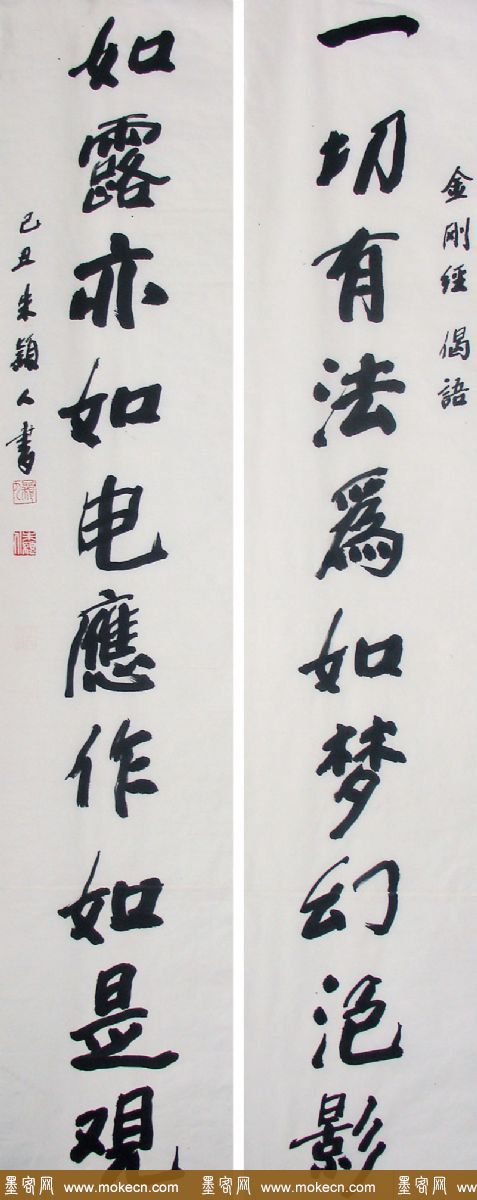 金剛經偈語
一切有法爲如梦幻泡影
如露亦如电應作如是观
己丑朱颖人書
墨客网 www.mokecn.com 墨客网 www.mokecn.com 墨客网